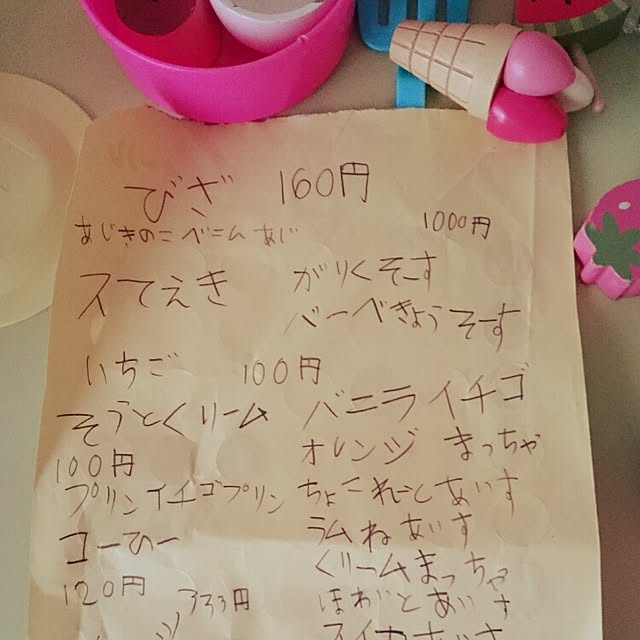 びざ 160円
あじきのこ べーニム あじ
1000円
スてえき
がりくそーす
バーべきょうそーす
いちご 100円
そうとくリーム
100円
プリンイチゴプリン
コーひー
120円
333円
バニライチゴ
オレンジ まっちゃ
ちょこれーとあいす
ラムねあいす
くりームまっちゃ
ほわいとあいす